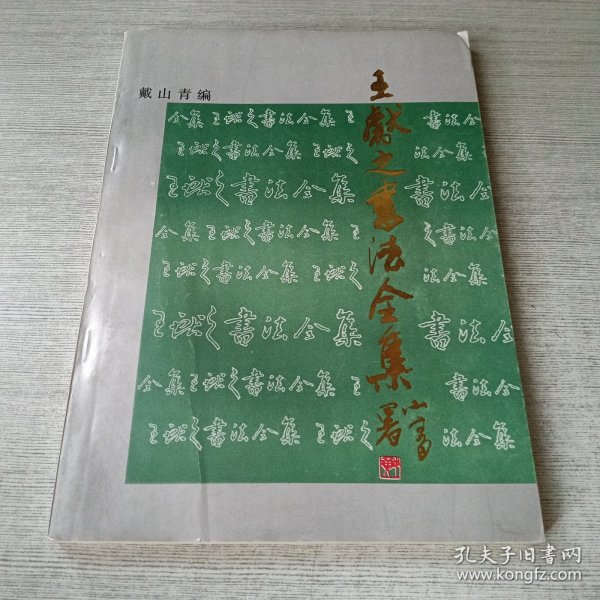 戴山青编
王献之书法全集
小莽署
全集 王献之书法全集 王 书法全集
王献之书法全集 王献 法全集
王献之书法全集 王献 书法全集
王献之书法全集 王 之书法全集
王献之书法全集 王献 之书法全集
王献之书法全集 王献 书法全集
全集 王献之书法全集 王 书法全集
王献之书法全集 王献 法全集
孔夫子旧书网
www.kongfz.com